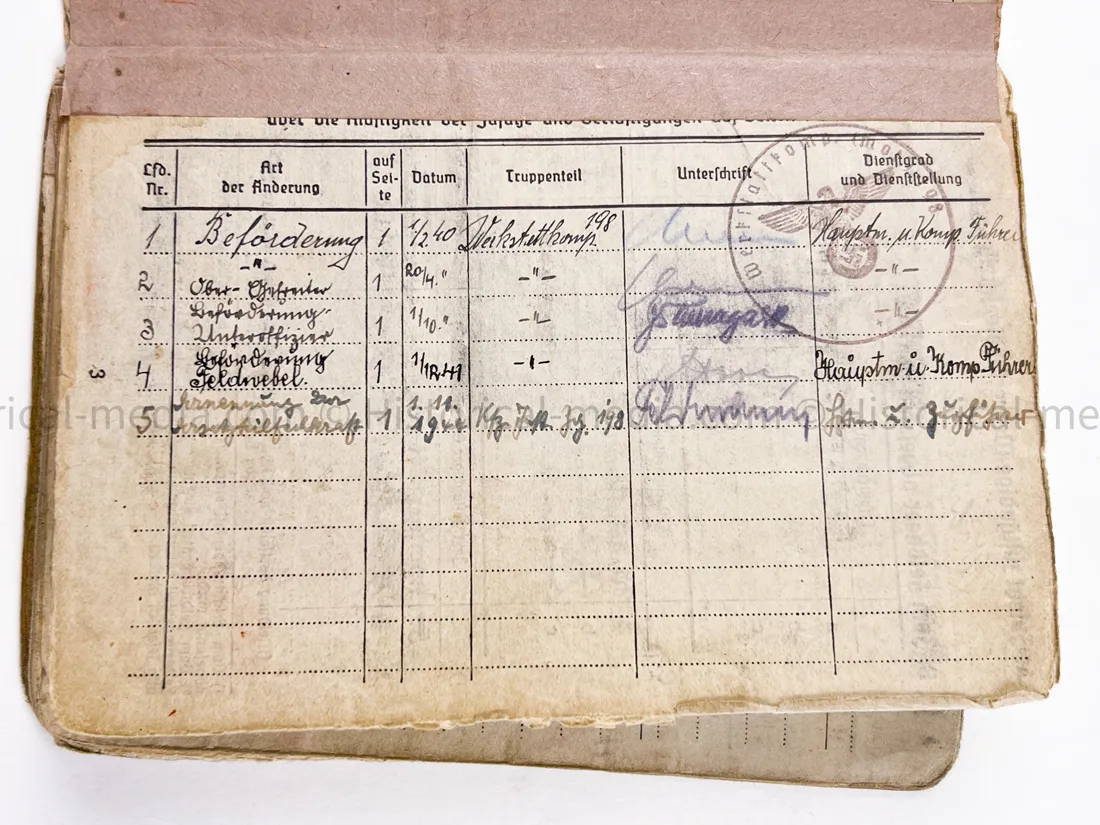 über die Richtigkeit der Zusätze und Berichtigungen auf Seiten
Lfd. Nr. Art der Änderung auf Sei- te Datum Truppenteil Unterschrift Dienstgrad und Dienststellung
1 Beförderung 1 1/2.40 Werkstattkomp. 198 Hauptm. u. Komp. Führer
2 -"- Ober-Gefreiter 1 20/4. " -"- -"-
3 Beförderung Unteroffizier 1 1/10. " -"- -"-
4 Beförderung Feldwebel. 1 1/12.41 -"- Hauptm u. Komp Führer
5 Ernennung 1 1.11. 198 u.
3
© Historical-media.com